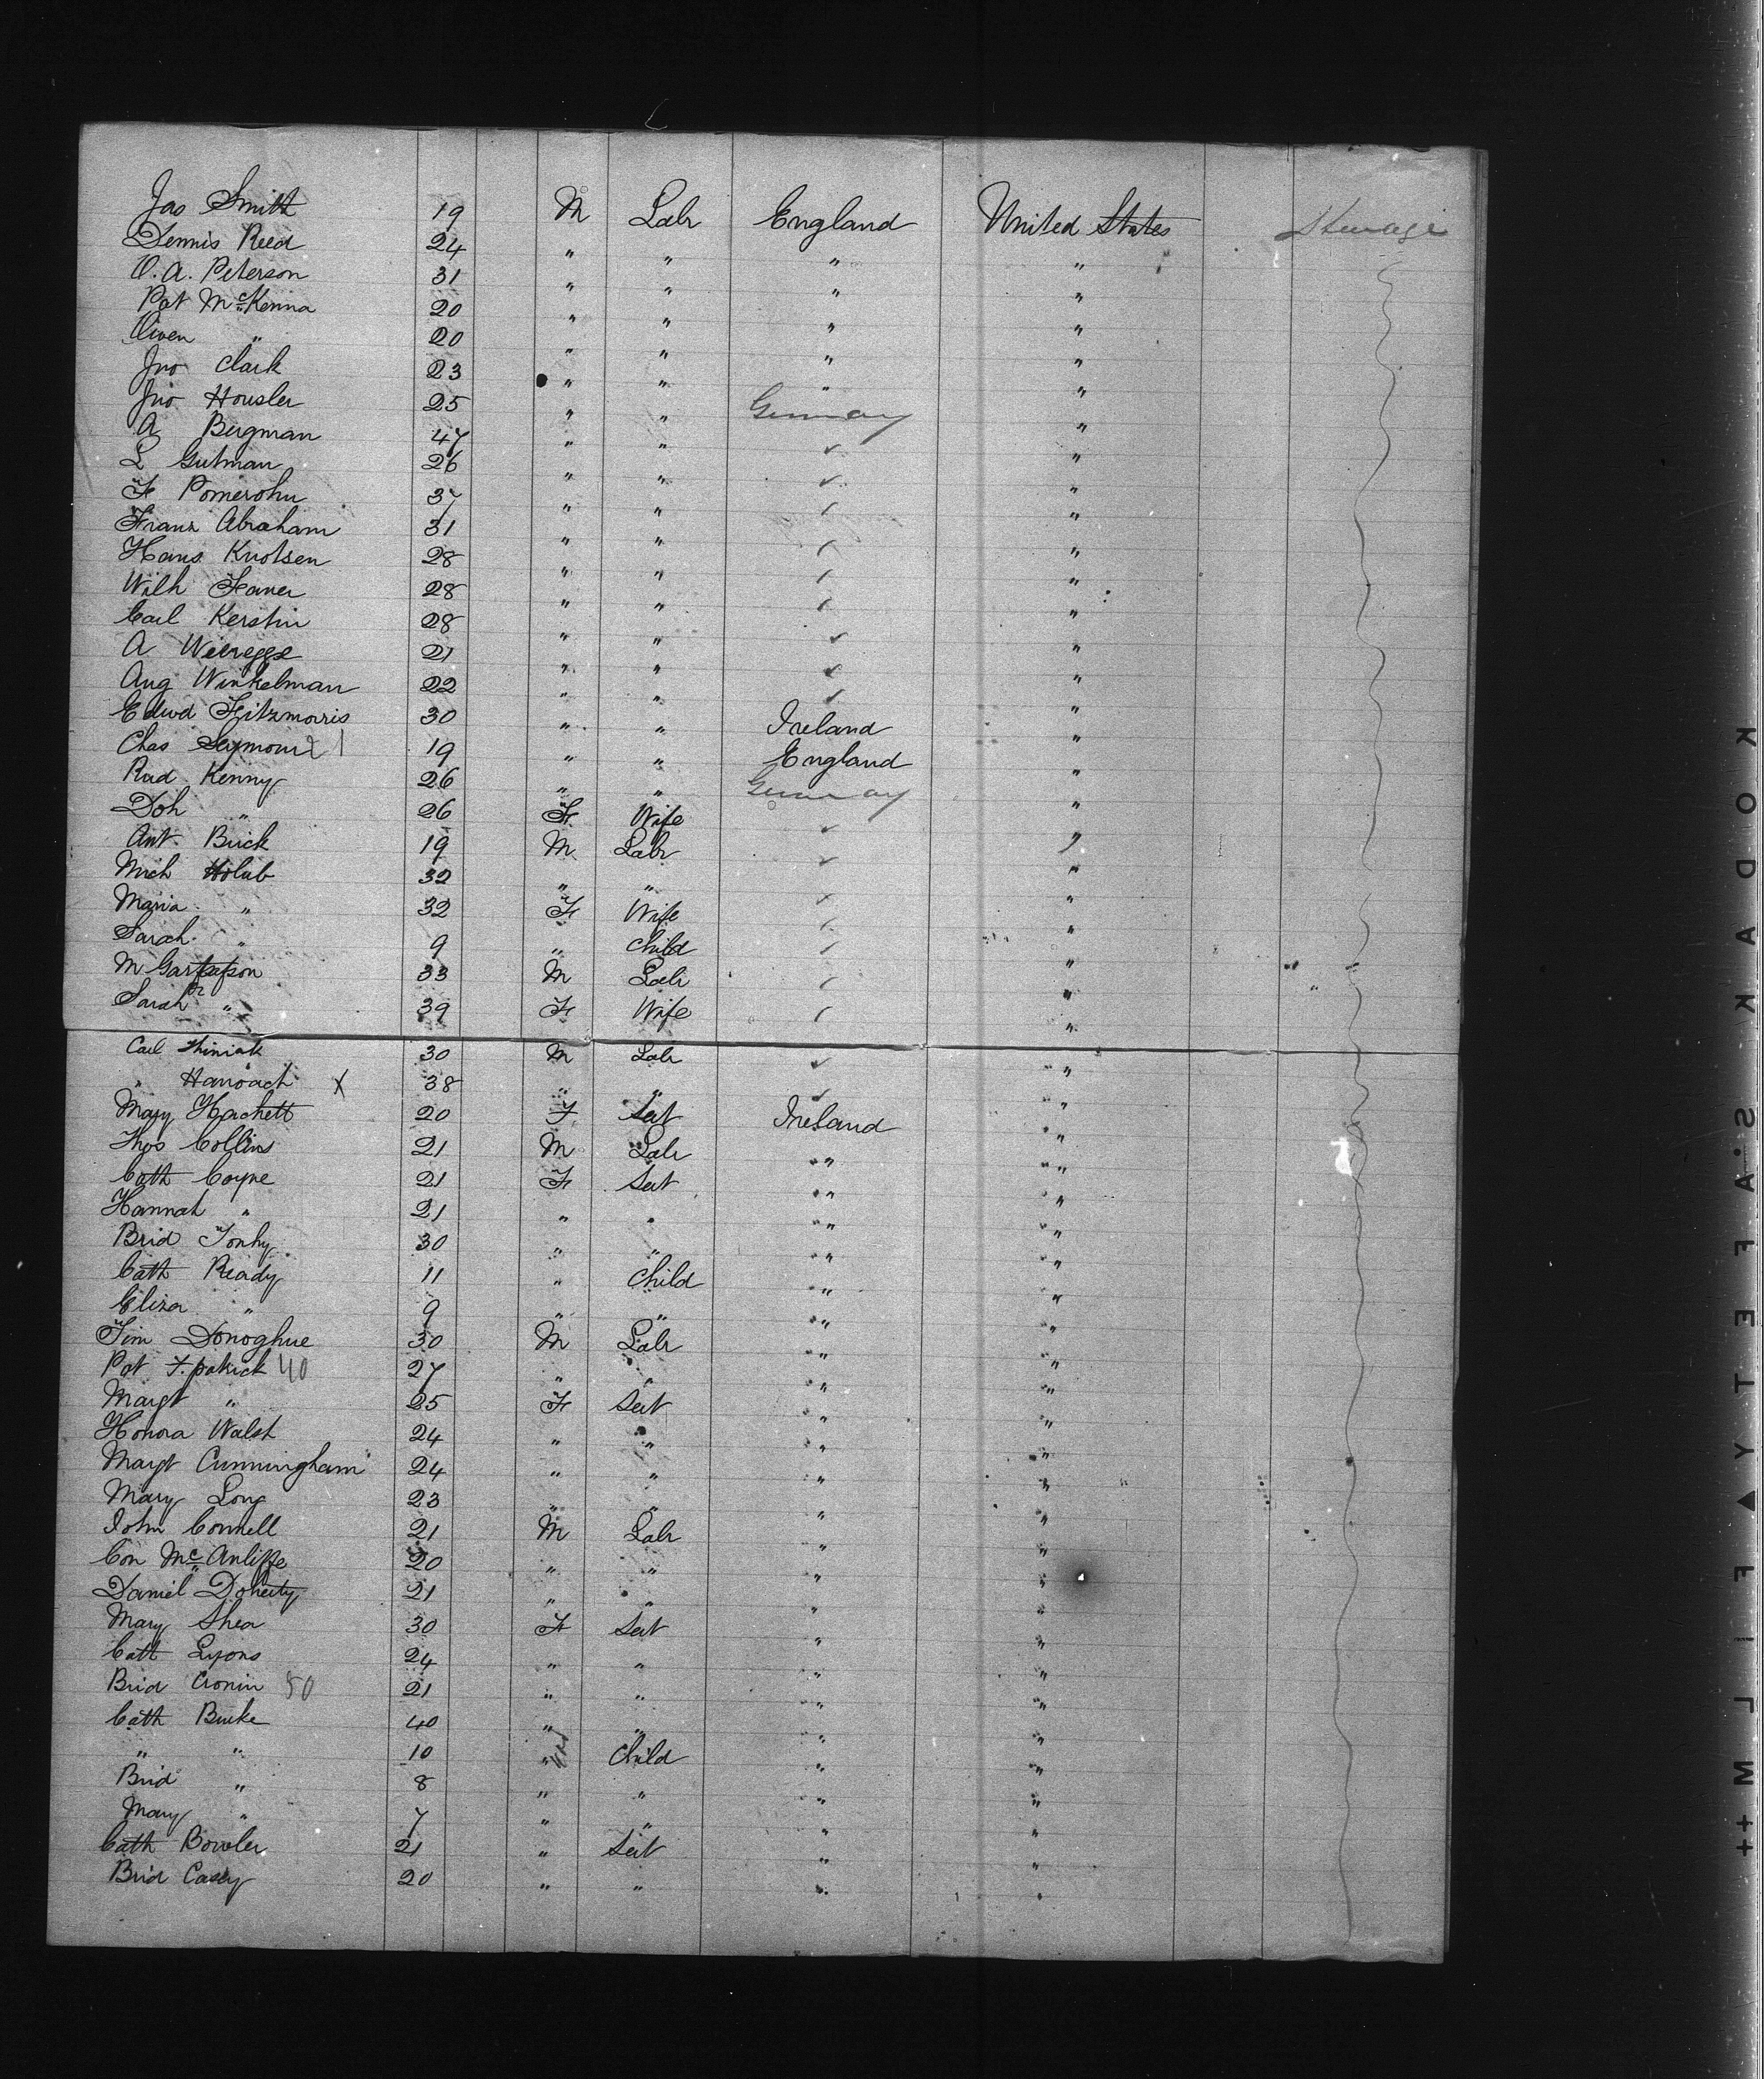 Jas Smith 19 M Labr England United States Steerage
Dennis Reed 24 " " " "
O. A. Peterson 31 " " " "
Pat McKenna 20 " " " "
Owen " 20 " " " "
Jno Clark 23 " " " "
Jno Housler 25 " " Germany "
A Bergman 47 " " "
L Gutman 26 " " "
F Pomerohn 37 " " "
Franz Abraham 31 " " "
Hans Knotsen 28 " " "
Wilh Faner 28 " " "
Carl Kerstin 28 " " "
A 21 " " "
Aug Winkelman 22 " " "
Edwd Fitzmorris 30 " " Ireland "
Chas Seymour 19 " " England "
Rud Kenny 26 " " Germany "
Doh " 26 F Wife "
Ant. Brick 19 M Labr "
Mich Holub 32 " " "
Maria " 32 F Wife "
Sarah " 9 " Child "
M 33 M Labr "
Sarah " 39 F Wife "
Carl 30 M Labr "
" Hanoach X 38 " " "
Mary Hachett 20 F Sert Ireland "
Thos Collins 21 M Labr " "
Cath Coyne 21 F Sert " "
Hannah " 21 " " " "
Brid 30 " " " "
Cath Ready 11 " Child " "
Eliza " 9 " " " "
Tim Donoghue 30 M Labr " "
Pat F.patrick 40 27 " " " "
Margt " 25 F Sert " "
Honora Walsh 24 " " " "
Margt Cunningham 24 " " " "
Mary Long 23 " " " "
John Connell 21 M Labr " "
Con McAuliffe 20 " " " "
Daniel Doherty 21 " " " "
Mary Shea 30 F Sert " "
Cath Lyons 24 " " " "
Brid Cronin 50 21 " " " "
Cath Burke 40 " " " "
" " 10 " Child " "
Brid " 8 " " " "
Mary " 7 " " " "
Cath Bowler 21 " Sert " "
Brid Casey 20 " " " "
KODAK S.A.FETY FILM